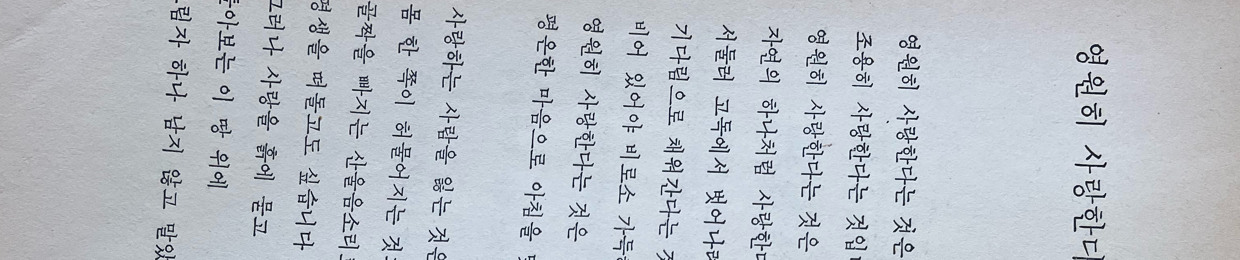 영원히 사랑한다
영원히 사랑한다는 것은
조용히 사랑한다는 것입
영원히 사랑한다는 것은
자연의 하나처럼 사랑한다
서둘러 고독에서 벗어나려
기다림으로 채워간다는 것
비어 있어야 비로소 가득
영원히 사랑한다는 것은
평온한 마음으로 아침을
사랑하는 사람을 잃는 것은
몸 한 쪽이 허물어지는 것
골짝을 빠지는 산울음소리
평생을 떠돌고도 싶습니다
그러나 사랑을 흙에 묻고
돌아보는 이 땅 위에
림자 하나 남지 않고 말았